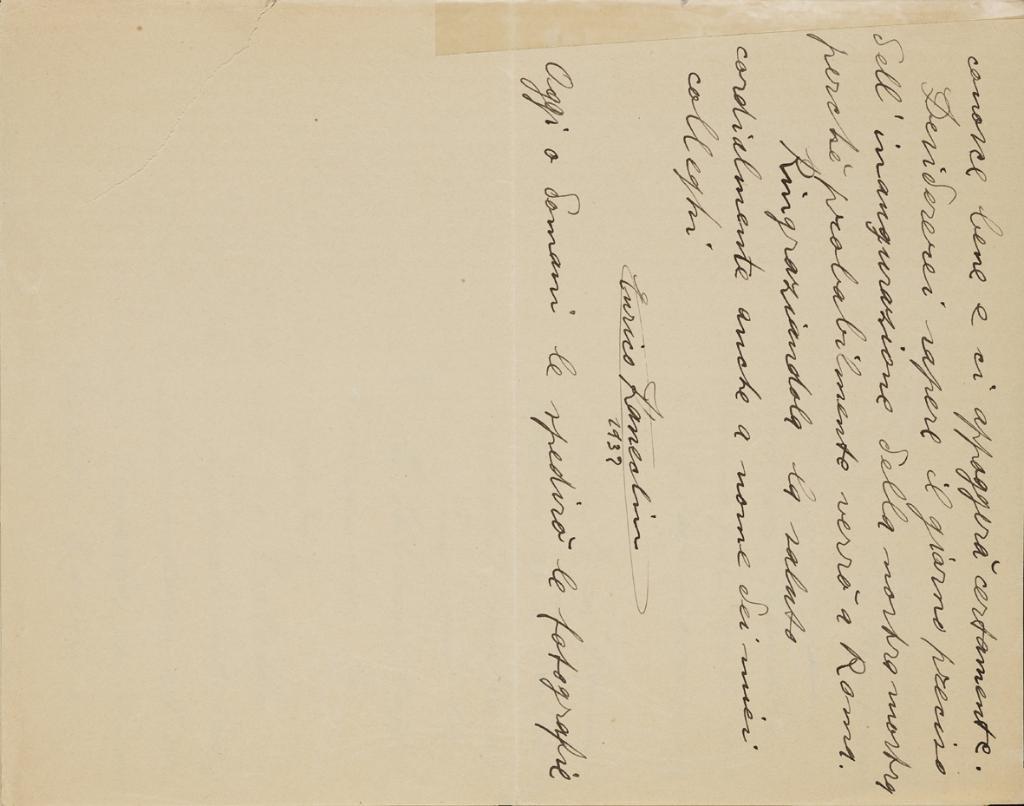 conosce bene e ci appoggerà certamente.
Desidererei sapere il giorno preciso
dell'inaugurazione della nostra mostra
perché probabilmente verrò a Roma.
Ringraziandola la saluto
cordialmente anche a nome dei miei
colleghi
Enrico
193?
Oggi o domani le spedirò le fotografie